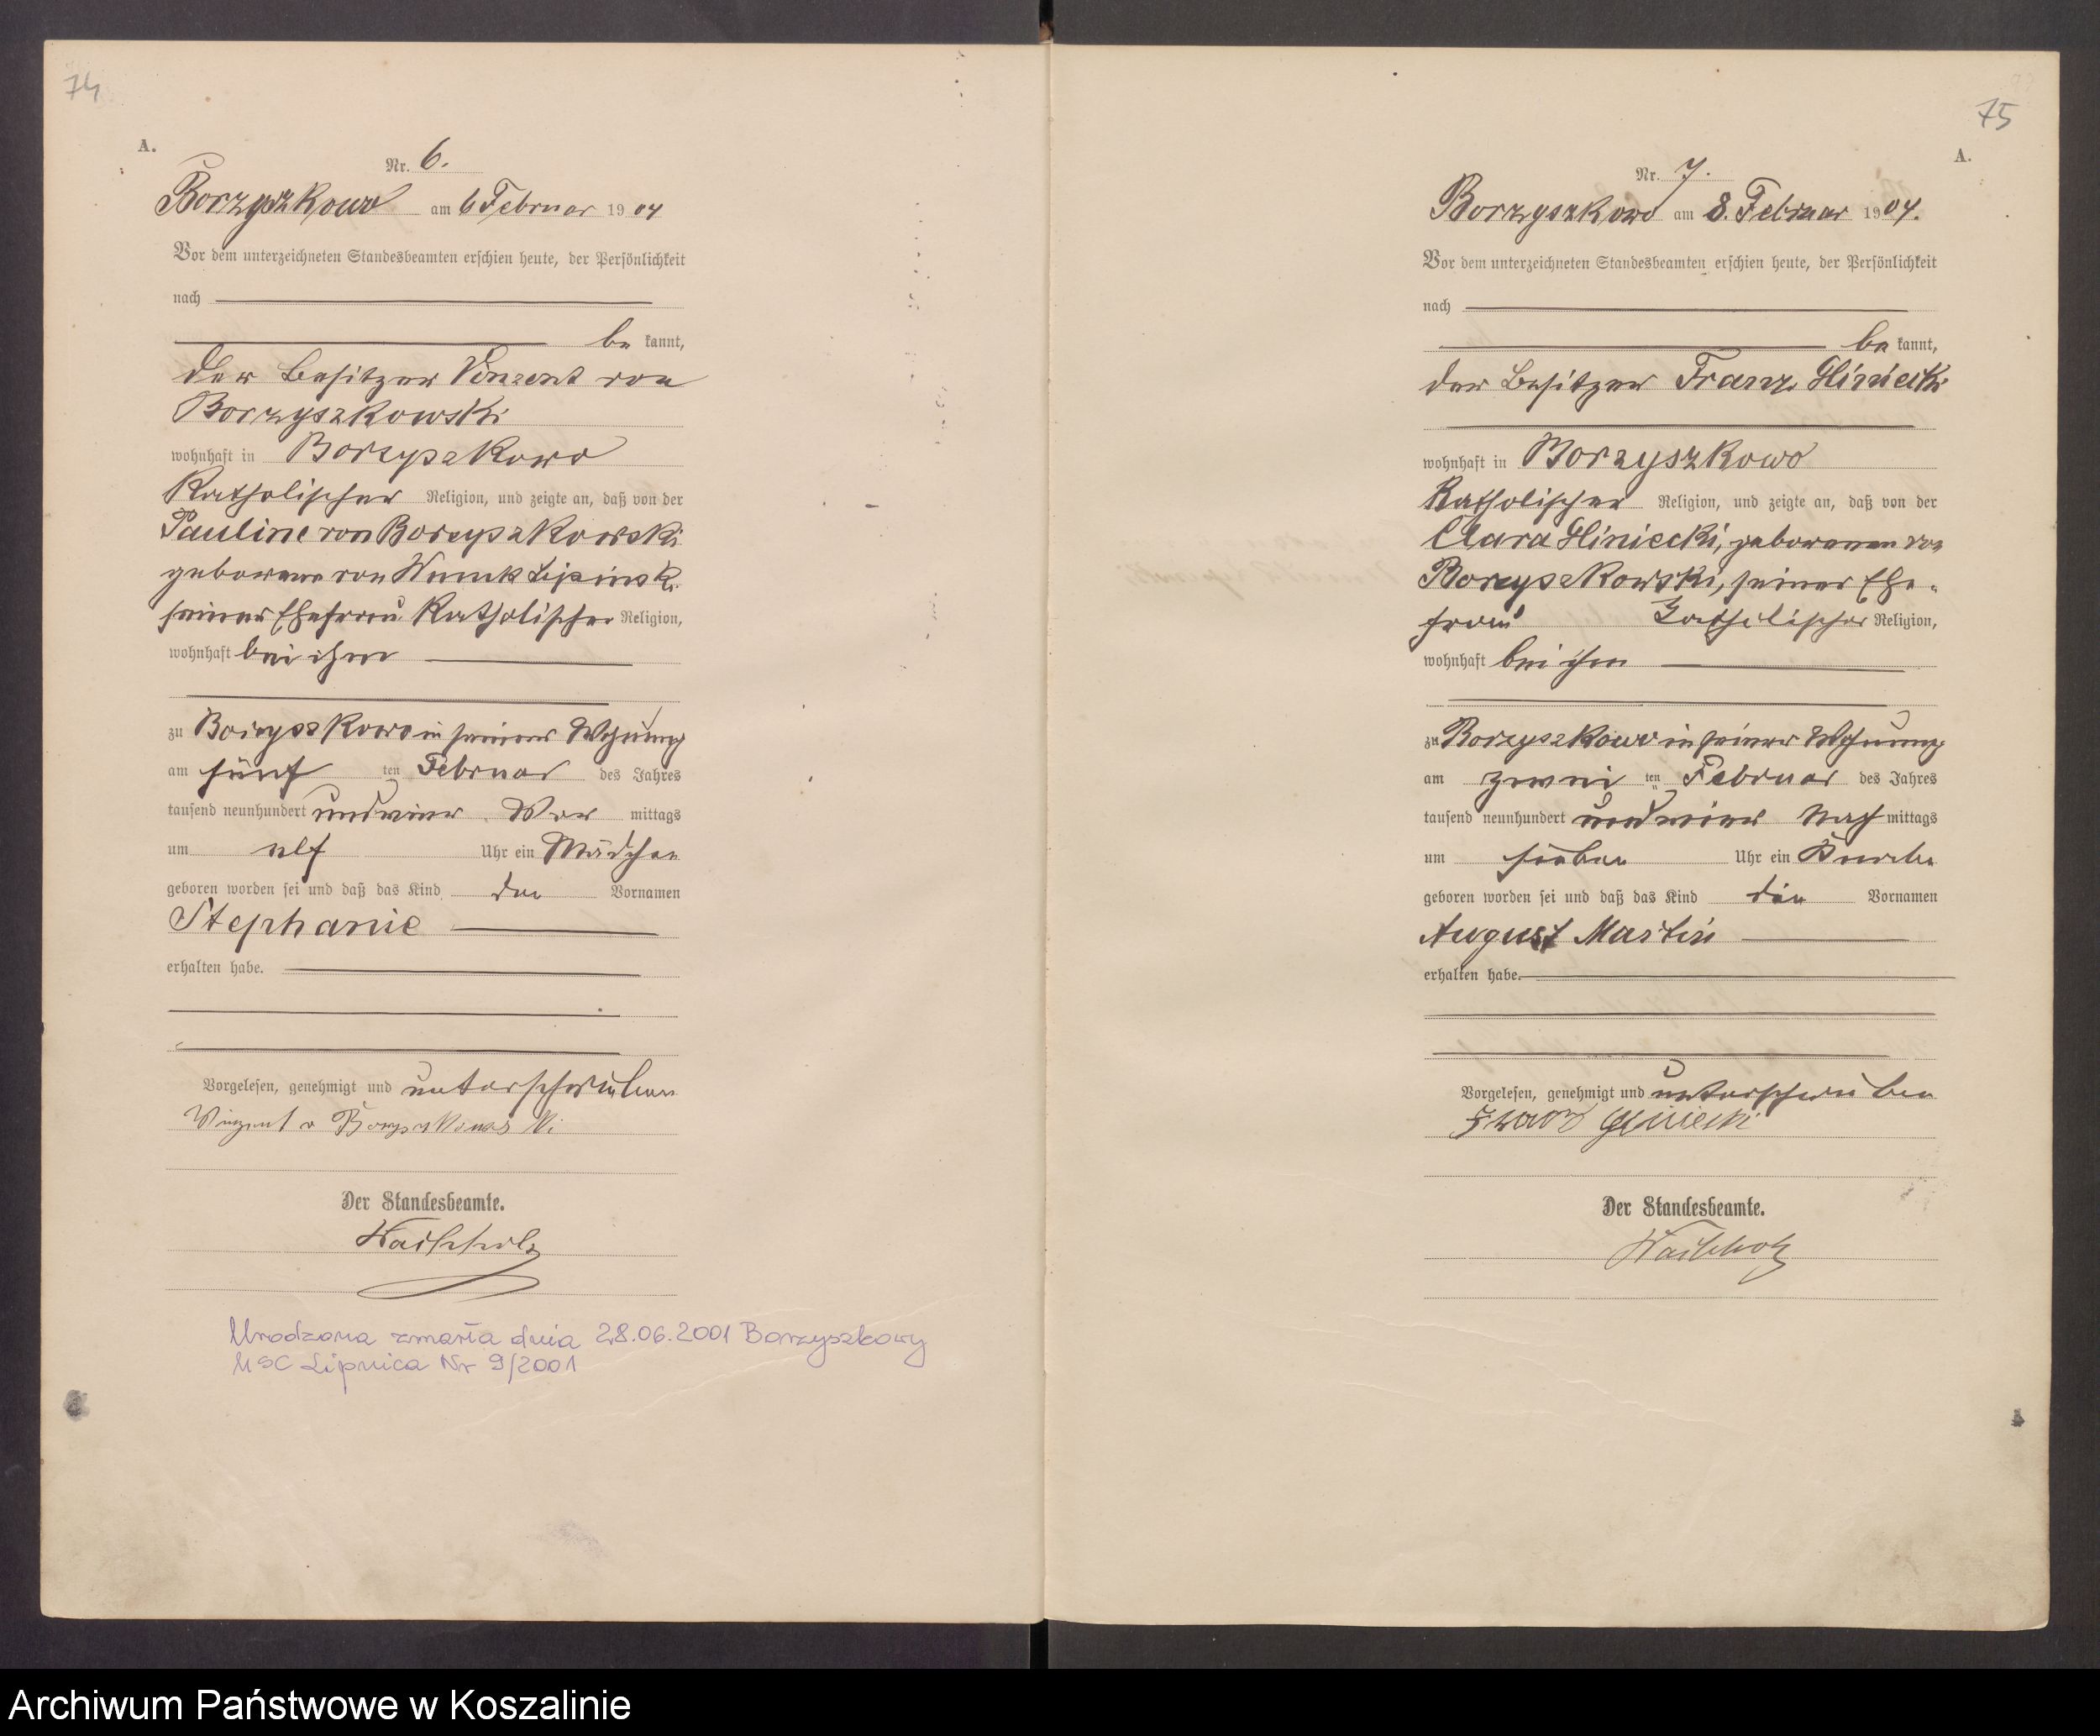 74
A.
Nr. 6.
Borzyszkowo am 6 Februar 1904
Vor dem unterzeichneten Standesbeamten erschien heute, der Persönlichkeit
nach
be kannt,
der Besitzer Vinzent von
Borzyszkowski
wohnhaft in Borzyszkowo
Katholischer Religion, und zeigte an, daß von der
Pauline von Borzyszkowski
geborene von Wnuk Lipinski
seiner Ehefrau Katholischer Religion,
wohnhaft bei ihm
zu Borzyszkowo in seiner Wohnung
am fünf ten Februar des Jahres
tausend neunhundert und vier Vor mittags
um elf Uhr ein Mädchen
geboren worden sei und daß das Kind den Vornamen
Stephanie
erhalten habe.
Vorgelesen, genehmigt und unterschrieben
Vinzent v Borzyszkowski
Der Standesbeamte.
Urodzona zmarła dnia 28.06.2001 Borzyszkowy
USC Lipnica Nr 9/2001
75
A.
Nr. 7.
Borzyszkowo am 8. Februar 1904.
Vor dem unterzeichneten Standesbeamten erschien heute, der Persönlichkeit
nach
be kannt,
der Besitzer Franz Gliniecki
wohnhaft in Borzyszkowo
Katholischer Religion, und zeigte an, daß von der
Clara Gliniecki, geborenen von
Borzyszkowski, seiner Ehe-
frau Katholischer Religion,
wohnhaft bei ihm
zu Borzyszkowo in seiner Wohnung
am zwei ten Februar des Jahres
tausend neunhundert und vier Nach mittags
um sieben Uhr ein Knabe
geboren worden sei und daß das Kind die Vornamen
August Martin
erhalten habe.
Vorgelesen, genehmigt und unterschrieben
Franz Gliniecki
Der Standesbeamte.
Archiwum Państwowe w Koszalinie